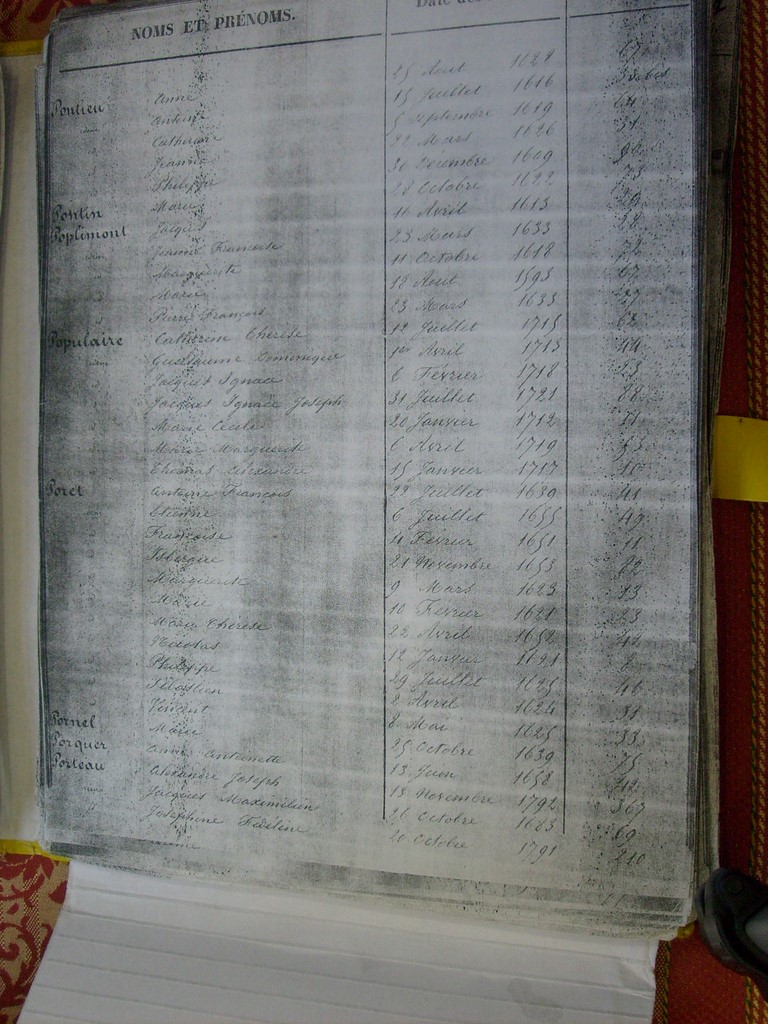 NOMS ET PRÉNOMS. Date des
Pontieu Anne 25 Aout 1628 67
idem Antoine 15 Juillet 1616 33 bis
Catherine 5 Septembre 1619 64
Jeanne 22 Mars 1626 51
Philippe 30 Decembre 1609
Pontin Marie 28 Octobre 1622 73
Poplimont Jacques 16 Avril 1613 29
idem Jeanne Francoise 23 Mars 1633 28
Marguerite 11 Octobre 1618 72
Marie 12 Aout 1593 67
Pierre François 23 Mars 1633 77
Populaire Catherine Therese 12 Juillet 1715 62
idem Guillaume Dominique 1er Avril 1713 44
Jacques Ignace 6 Février 1718
Jacques Ignace Joseph 31 Juillet 1721 88
Marie Cecile 20 Janvier 1712
Marie Marguerite 6 Avril 1719 53
Thomas Alexandre 15 Janvier 1717 10
Poret Antoine François 22 Juillet 1639 41
Etienne 6 Juillet 1655 49
Françoise 4 Février 1651 11
Isbergue 21 Novembre 1653
Marguerite 9 Mars 1623 13
Marie 10 Février 1621 23
Marie Therese 22 Avril 1652 42
Nicolas 12 Janvier 1621
Philippe 29 Juillet 1625 46
Sébastien 2 Avril 1624 31
Vincent 8 Mai 1625 33
Pornel Marie 25 Octobre 1639 75
Porquer Anne Antoinette 13 Juin 1658
Porteau Alexandre Joseph 13 Novembre 1792 367
idem Jacques Maximilien 26 Octobre 1683 69
Josephine Faustine 20 Octobre 1791 210